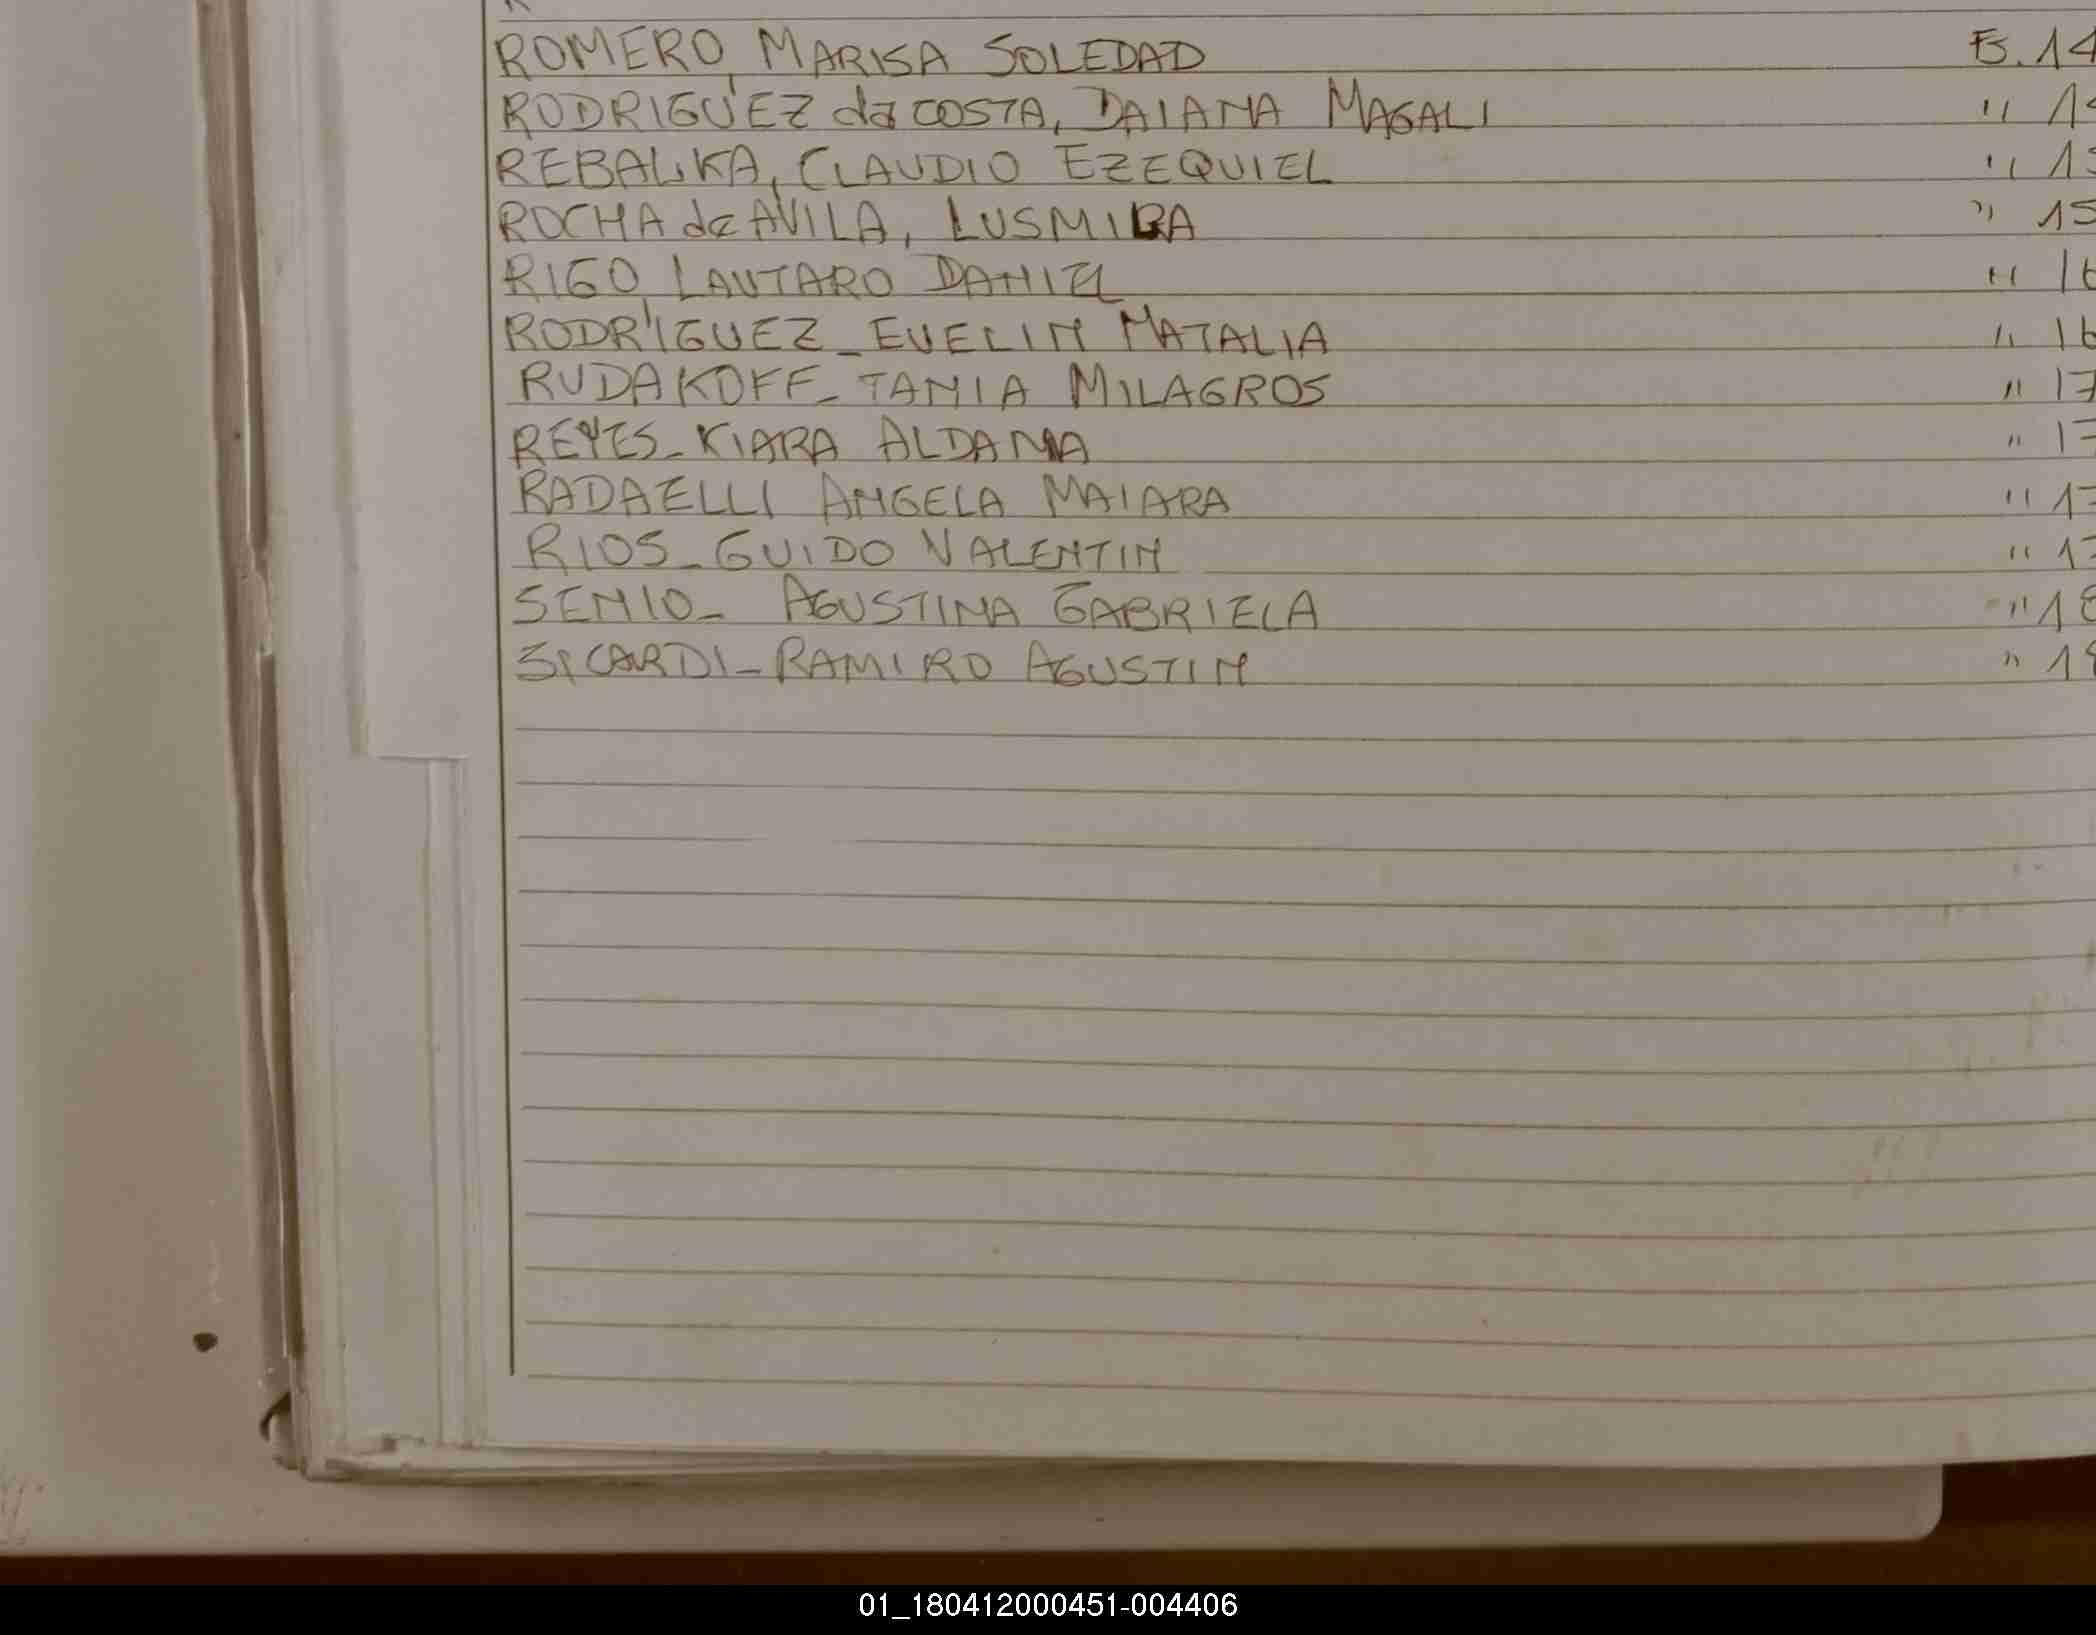 ROMERO, MARISA SOLEDAD Fs. 14
RODRIGUEZ da COSTA, DAIANA MAGALI "
REBALKA, CLAUDIO EZEQUIEL "
ROCHA de AVILA, LUSMILA " 15
RIGO, LAUTARO DANIEL " 16
RODRIGUEZ_EVELIN NATALIA " 16
RUDAKOFF_TANIA MILAGROS " 17
REYES_KIARA ALDANA " 17
RADAELLI ANGELA NAIARA " 17
RIOS_GUIDO VALENTIN " 17
SENIO_ AGUSTINA GABRIELA " 18
SICARDI_RAMIRO AGUSTIN "
01_180412000451-004406